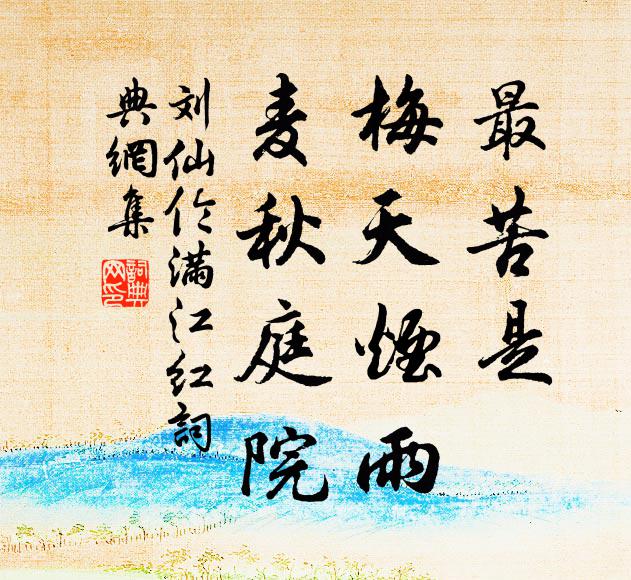 最苦是
梅天煙雨
麦秋庭院
刘仙伦满江红詞
典網集
詞典
网印